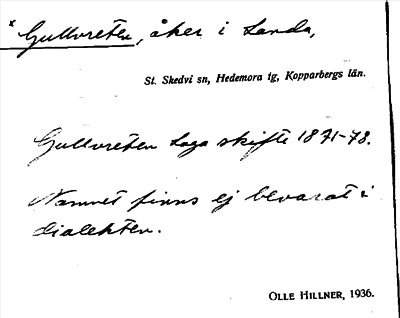 * Gullvreten, åker i Landa,
St. Skedvi sn, Hedemora tg, Kopparbergs län.
Gullvreten Laga skifte 1871-78.
Namnet finns ej bevarat i
dialekten.
OLLE HILLNER, 1936.